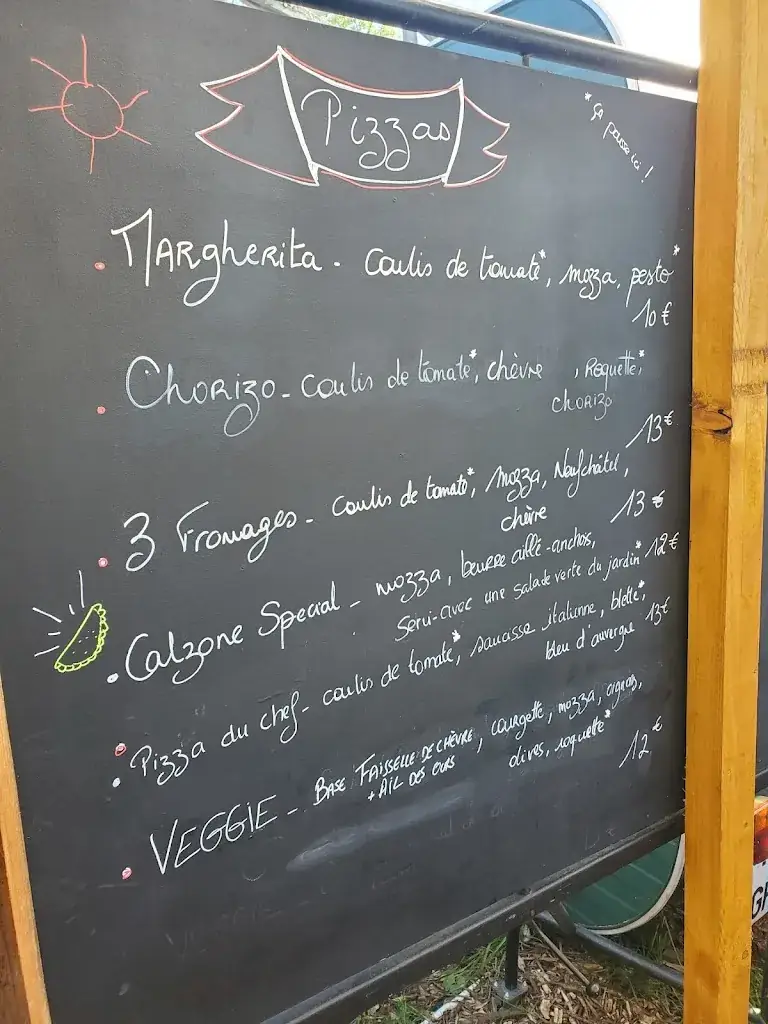 Pizzas
*ça pousse ici !
Margherita - coulis de tomate*, mozza, pesto*
10 €
Chorizo - coulis de tomate*, chèvre , Roquette,*
chorizo
13 €
3 Fromages - coulis de tomate*, mozza, Neufchâtel,
chèvre
13 €
Calzone Special - mozza, beurre aillé-anchois,
Servi avec une salade verte du jardin* 12 €
Pizza du chef - coulis de tomate*, saucisse italienne, blette*,
bleu d'auvergne 13 €
VEGGIE - BASE FAISSELLE DE CHÈVRE , courgette, mozza, oignons,
+ AIL DES OURS olives, roquette*
12 €